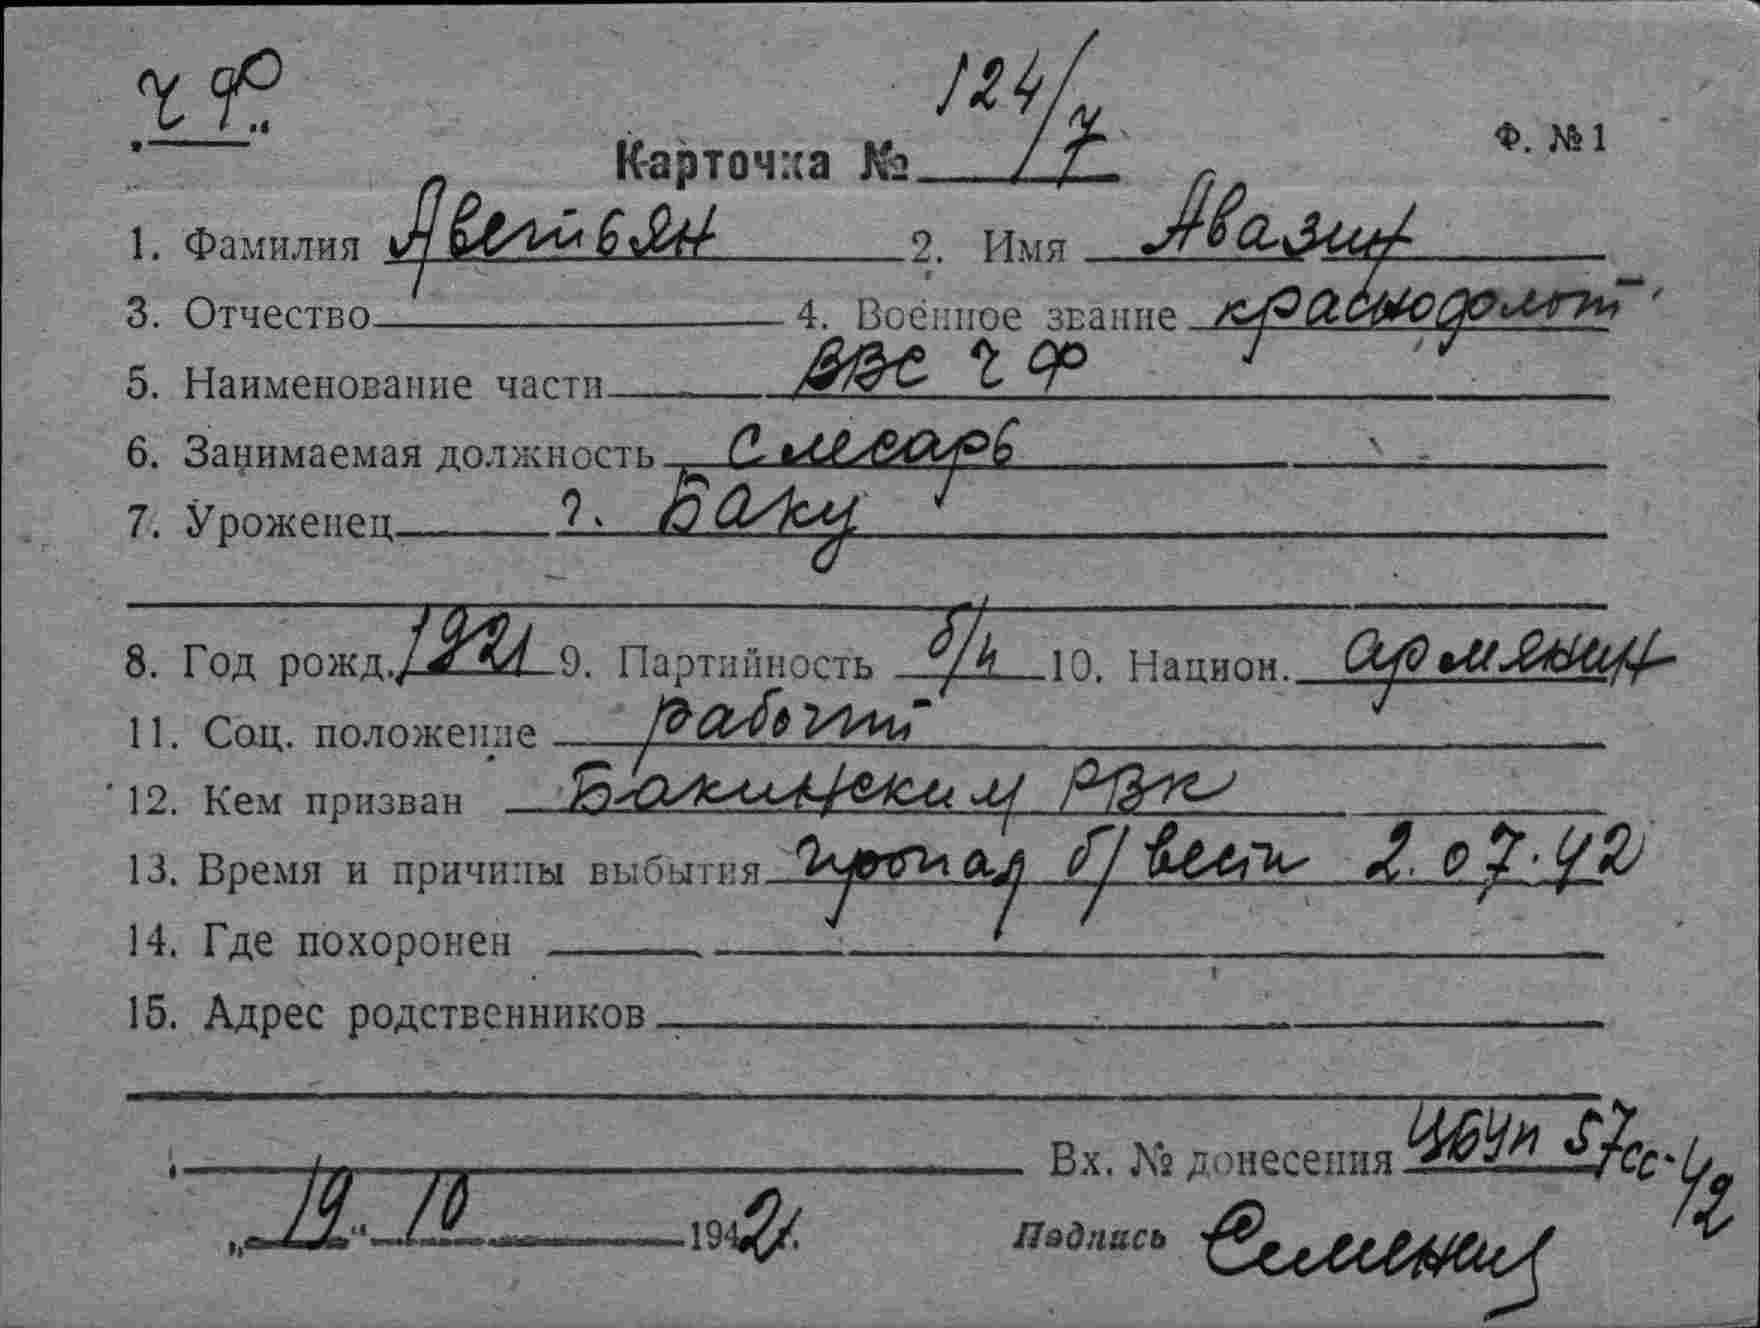 ЧФ
124/7
Ф. №1
Карточка №
1. Фамилия Аветьян 2. Имя Авазин
3. Отчество 4. Военное звание краснофлот
5. Наименование части ВВС ЧФ
6. Занимаемая должность слесарь
7. Уроженец г. Баку
8. Год рожд. 1921 9. Партийность б/п 10. Национ. армянин
11. Соц. положение рабочий
12. Кем призван Бакинским РВК
13. Время и причины выбытия пропал б/вести 2.07.42
14. Где похоронен
15. Адрес родственников
Вх. № донесения 57сс-42
„19“ 10 1942г.
Подпись